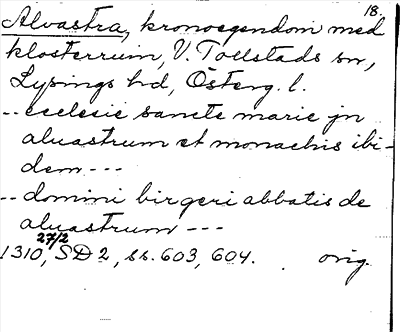 18.
Alvastra, kronoegendom med
klosterruin, V. Tollstads sn,
Lysings hd, Österg. l.
-- ecclesie sancte marie jn
aluastrum et monachis ibi-
dem ---
-- domini birgeri abbatis de
aluastrum ---
1310 27/2, SD 2, ss. 603, 604. orig.